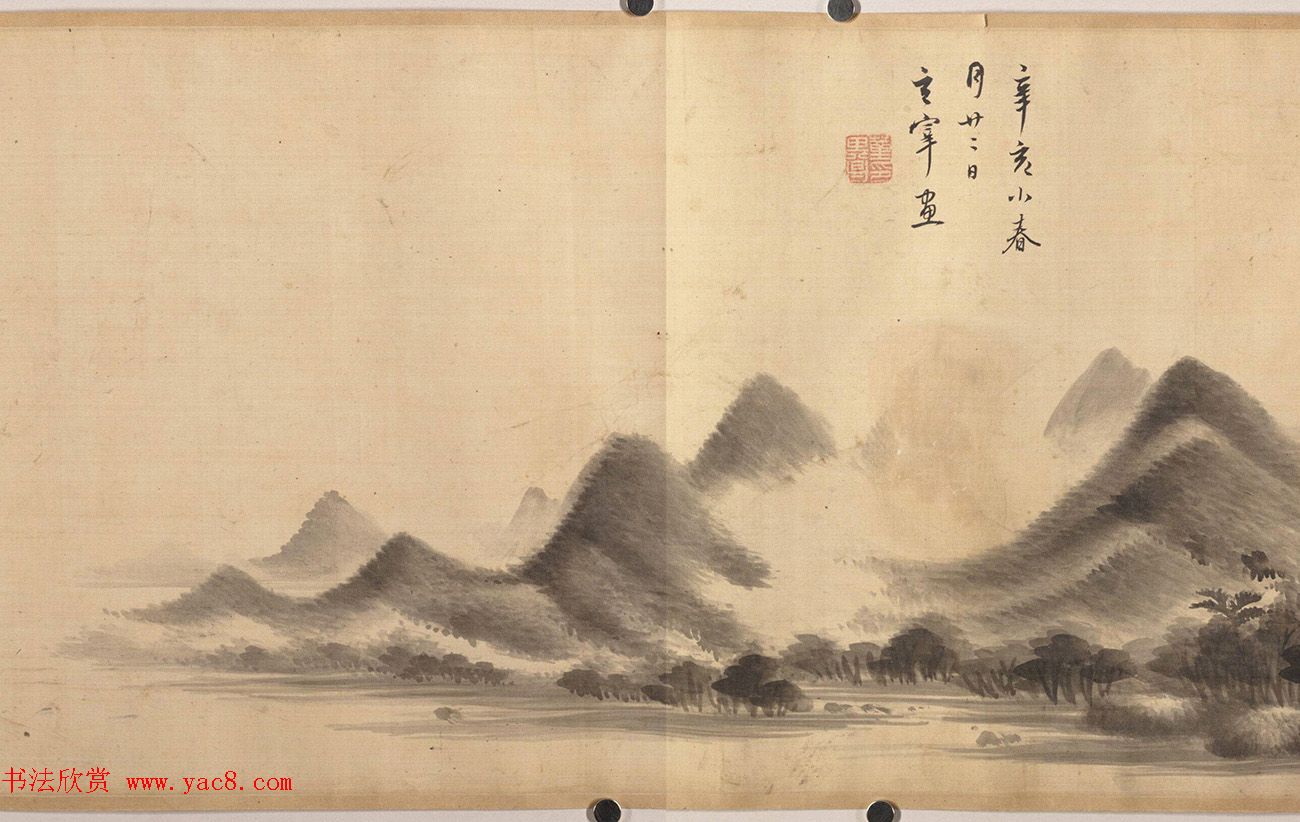 辛亥小春
月廿二日
玄宰画
董其昌印
书法欣赏 www.yac8.com